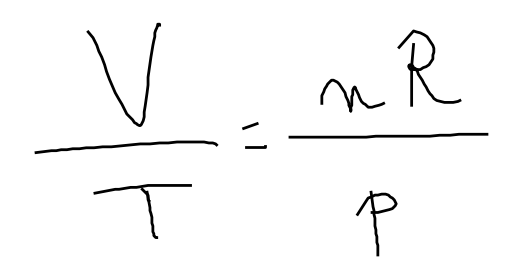 V/T = nR/P